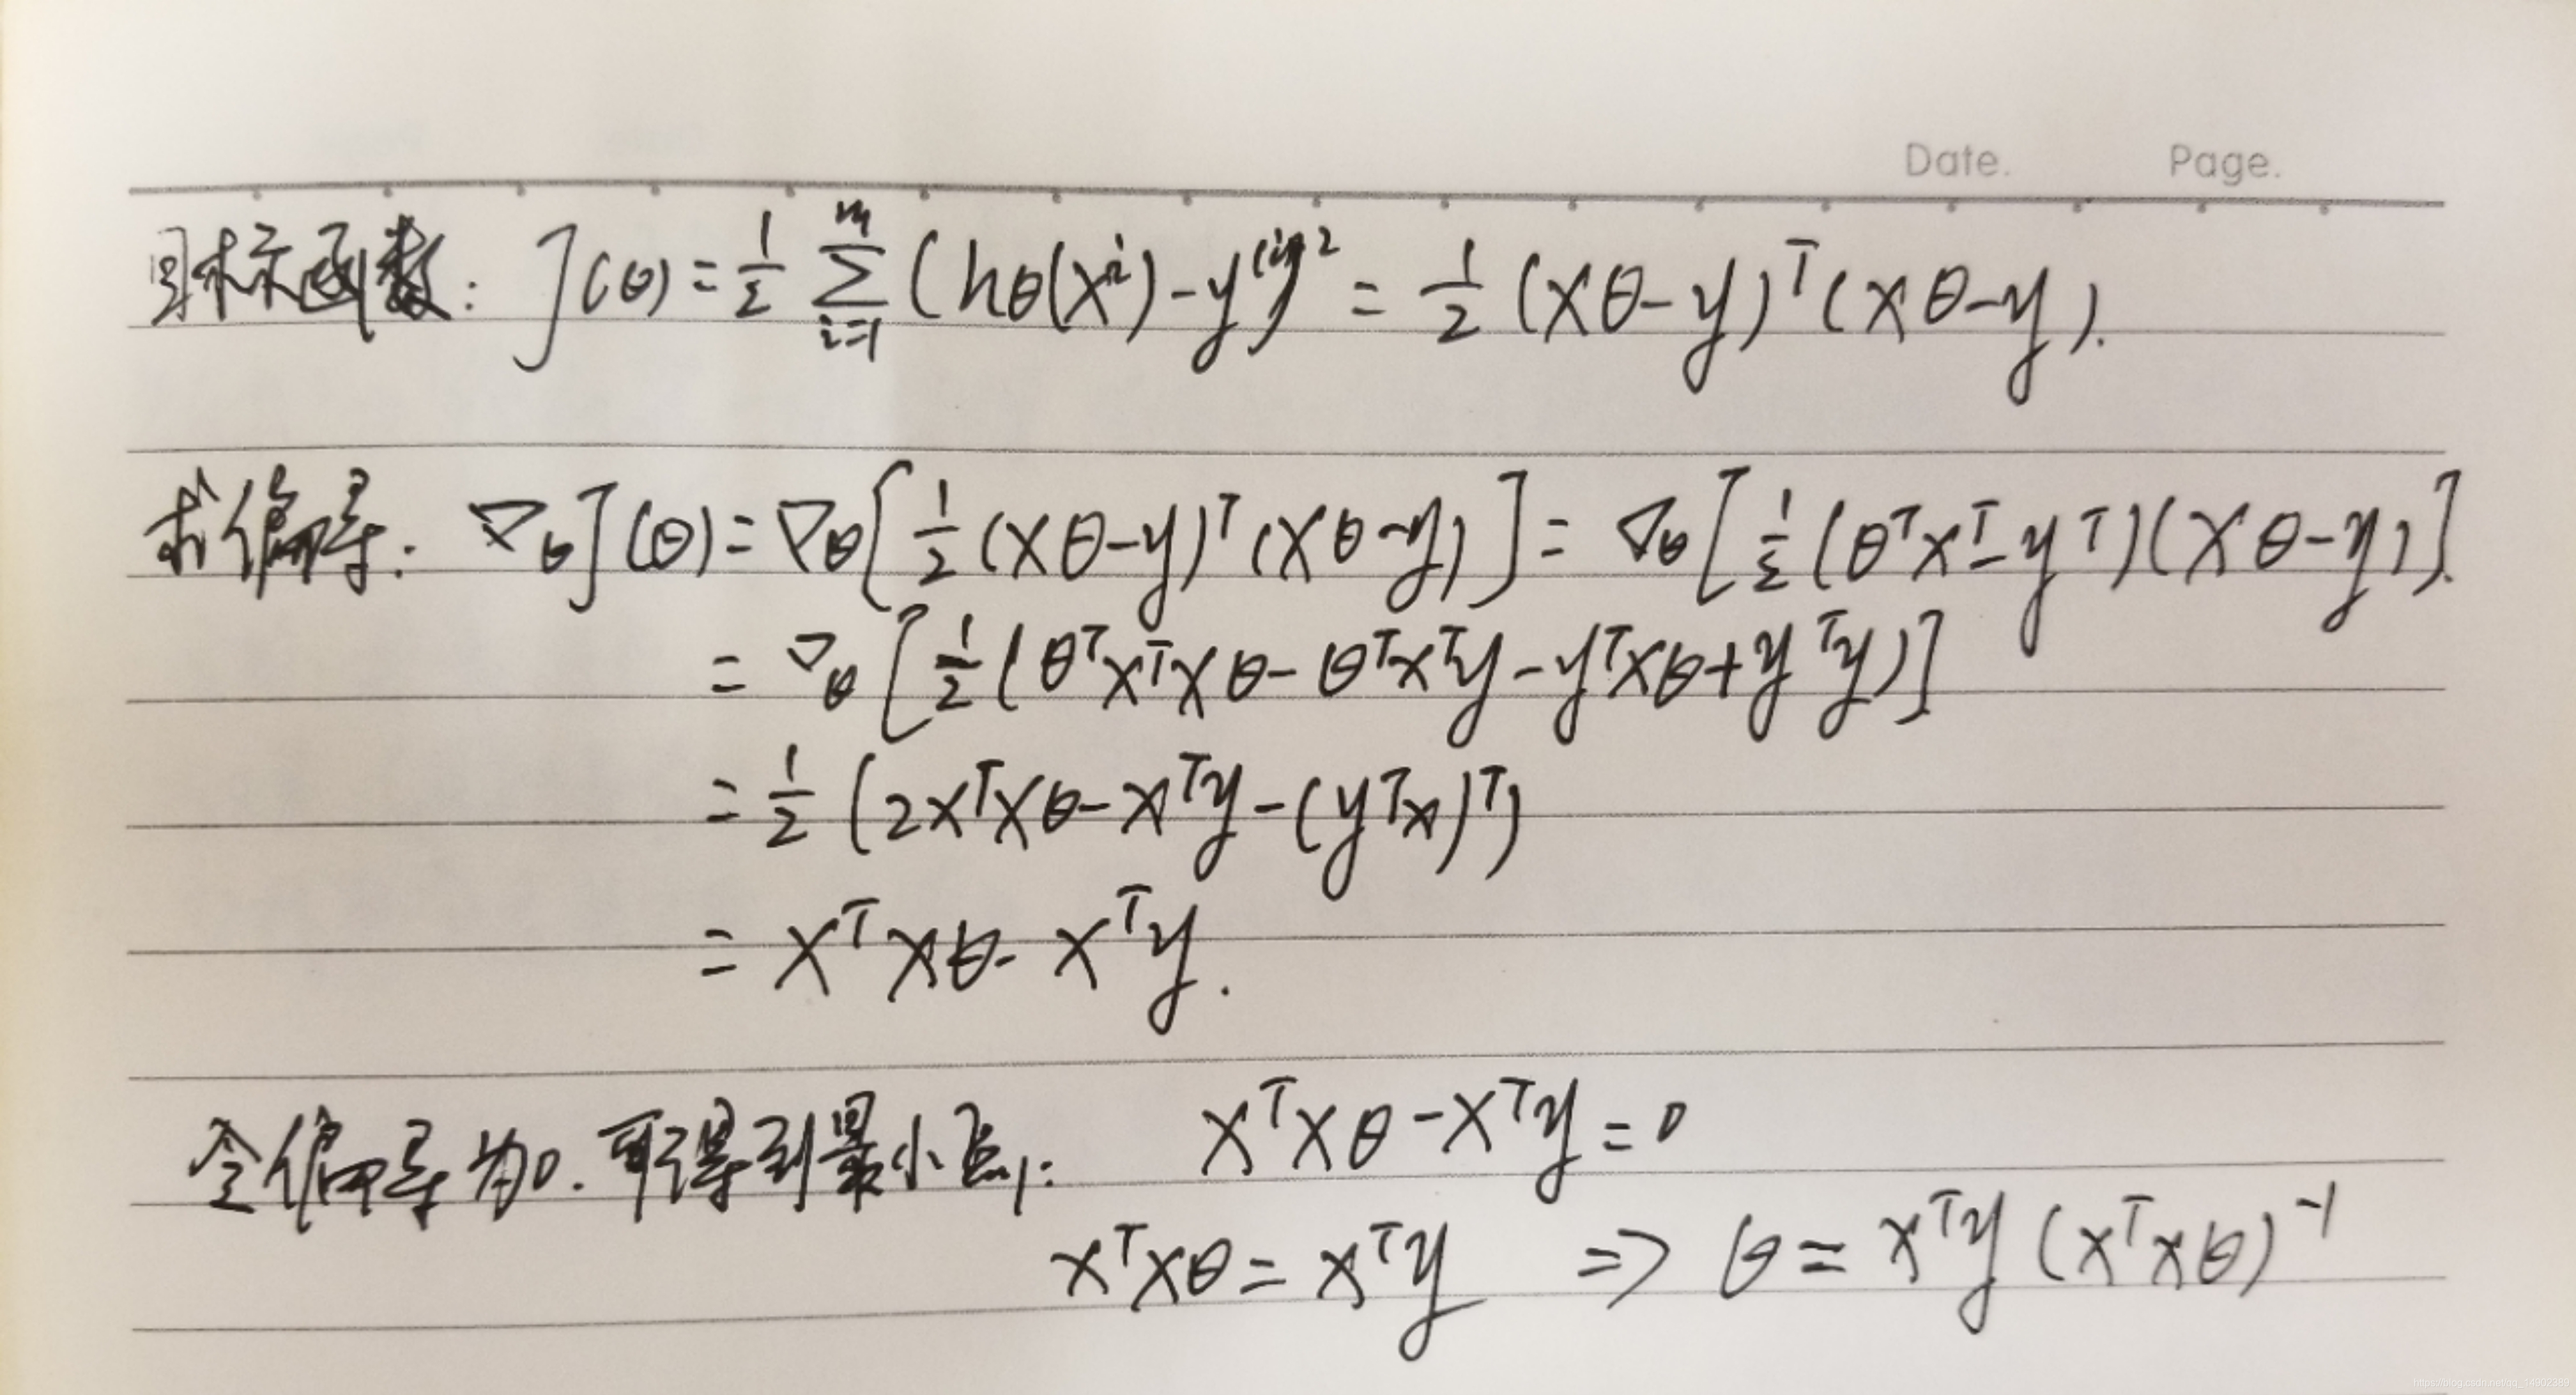 Date. Page.
目标函数: J(θ) = 1/2 Σ_{i=1}^{m} (hθ(x^i) - y^{(i)})^2 = 1/2 (Xθ-y)^T (Xθ-y).
求偏导: ∇_θ J(θ) = ∇_θ [1/2 (Xθ-y)^T (Xθ-y)] = ∇_θ [1/2 (θ^T X^T - y^T)(Xθ-y)].
= ∇_θ [1/2 (θ^T X^T Xθ - θ^T X^T y - y^T Xθ + y^T y)]
= 1/2 (2X^T Xθ - X^T y - (y^T X)^T)
= X^T Xθ - X^T y.
令偏导为0.可得到最小点: X^T Xθ - X^T y = 0
X^T Xθ = X^T y ⇒ θ = X^T y (X^T Xθ)^{-1}